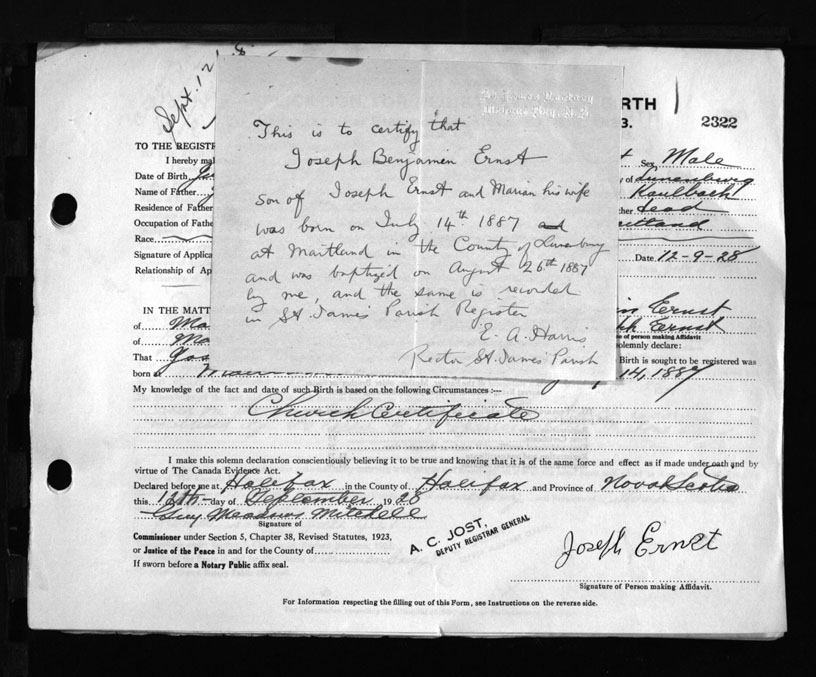 Sept. 12
RTH
3.
2322
TO THE REGISTR
I hereby mal
Sex Male
Date of Birth
y of Lunenburg
Name of Father
Kaulbach
Residence of Father
her dead
Occupation of Fathe
Maitland
Race
Signature of Applica
Date 12-9-28
Relationship of Ap
This is to certify that
Joseph Benjamen Ernst
son of Joseph Ernst and Marian his wife
was born on July 14th 1887
at Maitland in the County of Lunenburg
and was baptized on August 26th 1887
by me, and the same is recorded
in St James Parish Register
E. A. Harris
Rector St. James' Parish
IN THE MATT
Ernst
of Ma
ph Ernst
of Ma
e of person making Affidavit
olemnly declare:
That
Birth is sought to be registered was
born at
14, 1887
My knowledge of the fact and date of such Birth is based on the following Circumstances :—
Church Certificate
I make this solemn declaration conscientiously believing it to be true and knowing that it is of the same force and effect as if made under oath and by
virtue of The Canada Evidence Act.
Declared before me at Halifax in the County of Halifax and Province of Nova Scotia
this 12th day of September 1928
Guy Meadows Mitchell
Signature of
Commissioner under Section 5, Chapter 38, Revised Statutes, 1923,
or Justice of the Peace in and for the County of
If sworn before a Notary Public affix seal.
A. C. JOST,
DEPUTY REGISTRAR GENERAL
Joseph Ernst
Signature of Person making Affidavit.
For Information respecting the filling out of this Form, see Instructions on the reverse side.